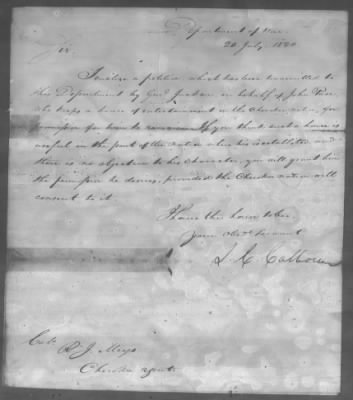 Department of War
20 July, 1820
Sir,
I enclose a petition which has been transmitted to
this Department by Genl Jackson in behalf of John
who keeps a house of entertainment in the Cherokee nation, for
permission for him to If you think such a house is
useful in the part of the nation where he is established and
there is no objection to his character, you will grant him
the permission he desires, provided the Cherokee nation will
consent to it.
I have the honor to be
your obdt servant
J. C. Calhoun
Col.
R. J. Meigs
Cherokee agent.